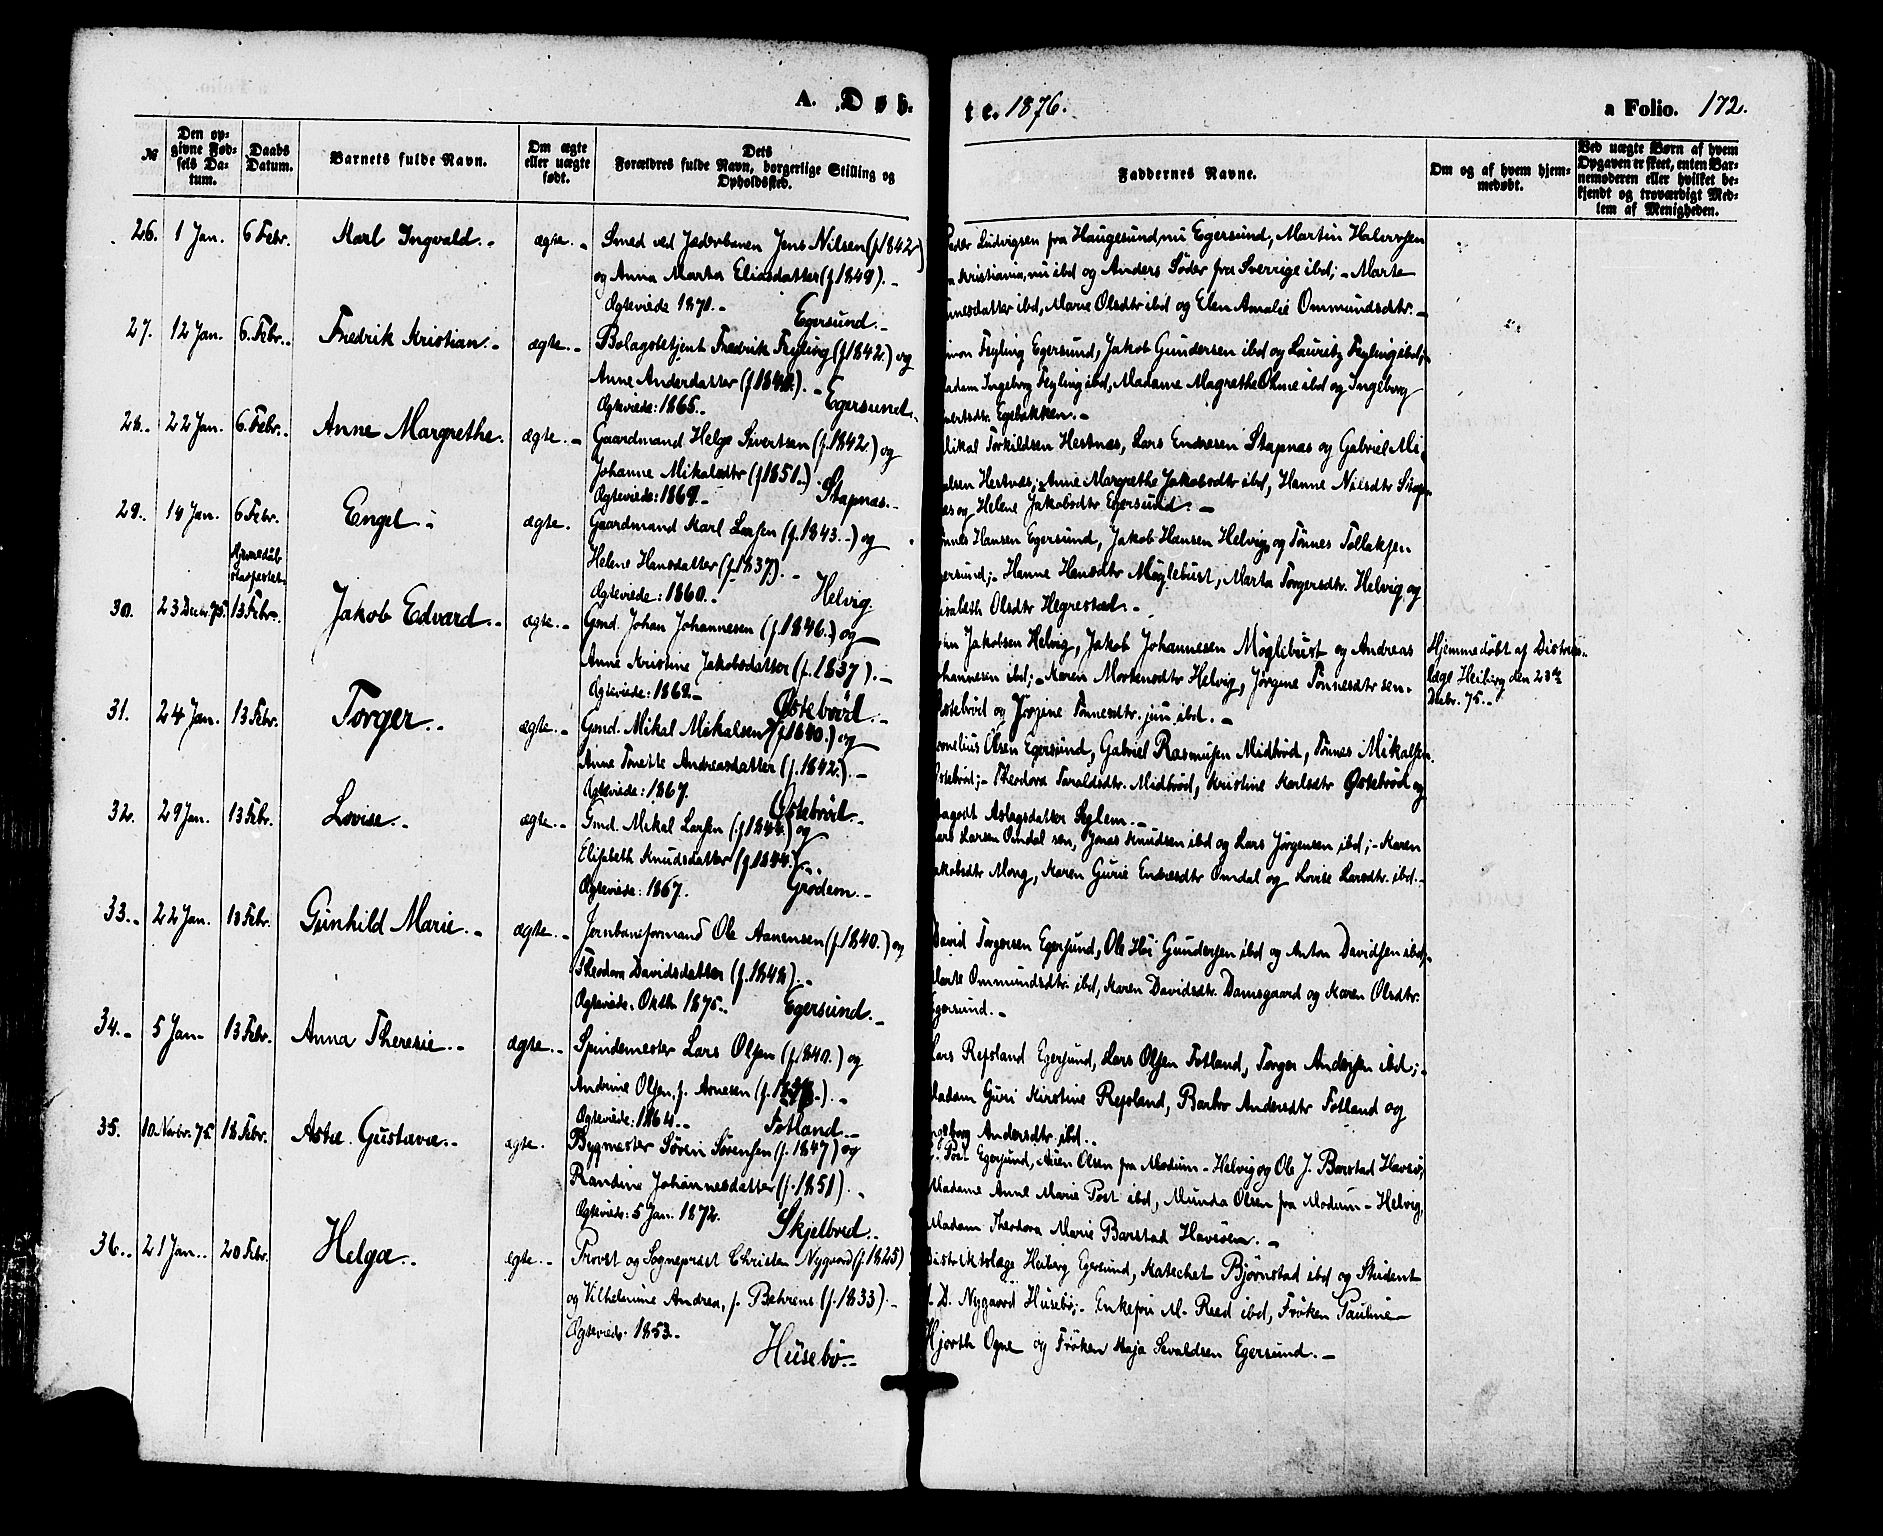 A. Døb-
te. 1876.
a Folio. 172.
№
Den op-
givne Fød-
sels Da-
tum.
Daabs
Datum.
Barnets fulde Navn.
Om ægte
eller uægte
født.
Dets
Forældres fulde Navn, borgerlige Stilling og
Opholdssted.
Faddernes Navne.
Om og af hvem hjem-
medøbt.
Ved uægte Børn af hvem
Opgaven er skeet, enten Bar-
nemoderen eller hvilket be-
kjendt og troværdigt Med-
lem af Menigheden.
26. 1 Jan. 6 Febr. Karl Ingvald. ægte. Smed ved Jæderbanen Jens Nilsen (f. 1842)
og Anna Marta Eliasdatter (f. 1849).
Ægteviede 1871. Egersund.
Peder Ludvigsen fra Haugesund, nu Egersund, Martin Halvorsen
Kristiania, nu ibd og Anders Söder fra Sverrige ibd; Marte
ibd, Marie Olsdtr ibd og Elen Amalie Ommundsdtr.
27. 12 Jan. 6. Febr. Fredrik Kristian. ægte. Bolagsbetjent Fredrik Feyling (f. 1842.) og
Anne Anderdatter (f. ).
Ægteviede: 1865. Egersund.
Feyling Egersund, Jakob Gundersen ibd og Lauritz Feyling ibd;
Madam Ingeborg Feyling ibd, Madame Magrethe Ohme ibd og Ingeborg
Egebakken.
28. 22 Jan. 6. Febr. Anne Margrethe. ægte. Gaardmand Helge Sivertsen (f. 1842.) og
Johanne Mikalsdtr (f. 1851.)
Ægteviede: 1869. Stapnæs.
Mikal Torkildsen Hestnæs, Lars Endresen Stapnæs og Gabriel Mi
kalsen Hestnæs; Anne Margrethe Jakobsdtr ibd, Hanne Nilsdtr Stap-
næs og Helene Jakobsdtr Egersund.
29. 14 Jan. 6 Febr. Engel. ægte. Gaardmand Karl Larsen (f. 1843.) og
Helene Hansdatter (f. 1837).
Ægteviede: 1860. Helvig
Tønnes Hansen Egersund, Jakob Hansen Helvig og Tønnes Tollaksen
Egersund; Hanne Hansdtr Møglebust, Marta Torgersdtr. Helvig og
Elisabeth Olsdtr Hegrestad.
Hjemmedøb
30. 23 Decbr. 75. 13 Febr. Jakob Edvard. ægte. Gmd. Johan Johannesen (f. 1846.) og
Anne Kristine Jakobsdatter (f. 1837).
Ægteviede: 1869. Østebröd.
John Jakobsen Helvig, Jakob Johannesen Møglebust og Andreas
Johannesen ibd; Karen Mortensdtr Helvig, Jørgine Tønnesdtr sen.
Østebröd og Jørgine Tønnesdtr. jun ibd.
Hjemmedøbt af Distrikts-
læge Heiberg den 23de
Decbr. 75.
31. 24 Jan. 13 Febr. Torger. ægte. Gmd. Mikal Mikalsen (f. 1840.) og
Anne Tonette Andreasdatter (f. 1842.).
Ægteviede: 1867. Østebröd.
Kornelius Olsen Egersund, Gabriel Rasmusen Midbröd, Tønnes Mikalsen
Østebröd; Theodora Taraldsdtr. Midbröd, Kristine Karlsdtr Østebröd og
Aslagsdatter Sylem.
32. 29 Jan. 13 Febr. Lovise. ægte. Gmd. Mikal Larsen (f. 1844.) og
Elisabeth Knudsdatter (f. 1844.).
Ægteviede: 1867. Grödem.
Lars Larsen Omdal sen, Jonas Knudsen ibd og Lars Jørgensen ibd; Karen
Jakobsdtr Mong, Karen Gurie Endresdtr Omdal og Lovise Larsdtr. ibd.
33. 22 Jan. 13 Febr. Gunhild Marie. ægte. Jernbaneformand Ole Aanensen (f. 1840.) og
Theodora Davidsdatter (f. 1848).
Ægteviede. Oktbr 1875. Egersund.
David Torgersen Egersund, Ole Gundersen ibd og Anton Davidsen ibd,
Marte Ommundsdtr. ibd, Karen Davidsdtr. Damsgaard og Karen Olsdtr.
Egersund.
34. 5 Jan. 13 Febr. Anna Theresie. ægte. Spindemester Lars Olsen (f. 1840.) og
Andrine Olsen, f. Arnesen (f. ).
Ægteviede: 1864. Fotland.
Lars Repsland Egersund, Lars Olsen Fotland, Torger Andersen ibd;
Madam Guri Kirstine Repsland, Barbro Andersdtr Fotland og
Ingeborg Andersdtr ibd.
35. 10 Novbr. 75 18 Febr. Asta Gustava. ægte. Bygmester Søren Sørensen (f. 1847) og
Randine Johannesdatter (f. 1851).
Ægteviede: 5 Jan. 1872. Skjelbred.
Post Egersund, Olsen fra Modum - Helvig og Ole J. Barstad Havsø;
Madame Anne Marie Post ibd, Munda Olsen fra Modum - Helvig,
Madam Theodora Marie Barstad Havsöen.
36. 21 Jan. 20 Febr. Helga. ægte. Provst og Sognepræst Christen Nygaard (f. 1825)
og Vilhelmine Andrea, f. Behrens (f. 1833).
Ægteviede. 1853. Husebö.
Distriktslæge Heiberg Egersund, Katechet Bjørnstad ibd og Student
D. Nygaard Husebö; Enkefru M. Reed ibd, Frøken Pauline
Hjorth Ogne og Frøken Maja Sevaldsen Egersund.